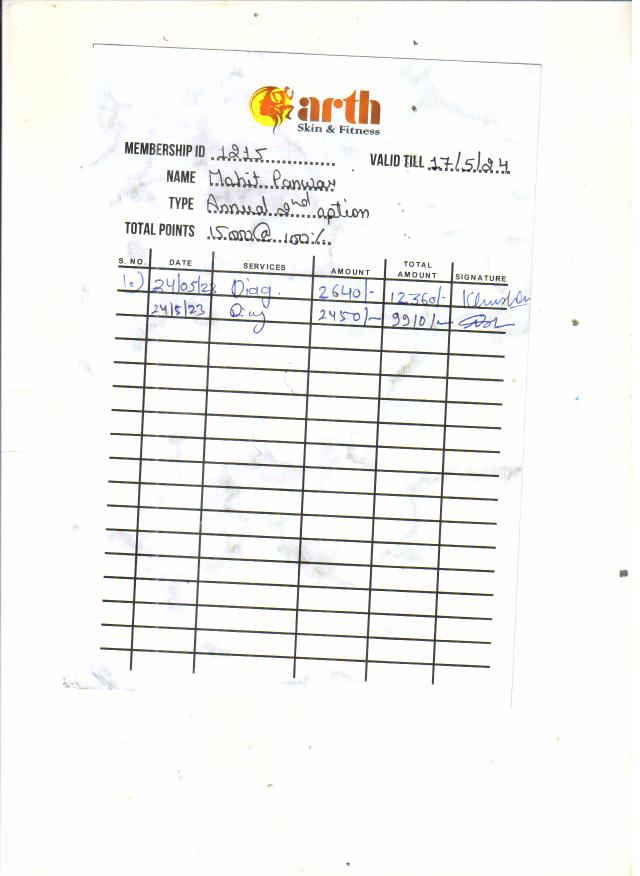 arth
Skin & Fitness
MEMBERSHIP ID 1215 VALID TILL 17/5/24
NAME Mohit Panwar
TYPE Annual 2nd option
TOTAL POINTS 15000@ 100%
S. NO. DATE SERVICES AMOUNT TOTAL AMOUNT SIGNATURE
1.) 24/05/23 Diag. 2640/- 12360/-
24/5/23 Diag 2450/- 9910/-